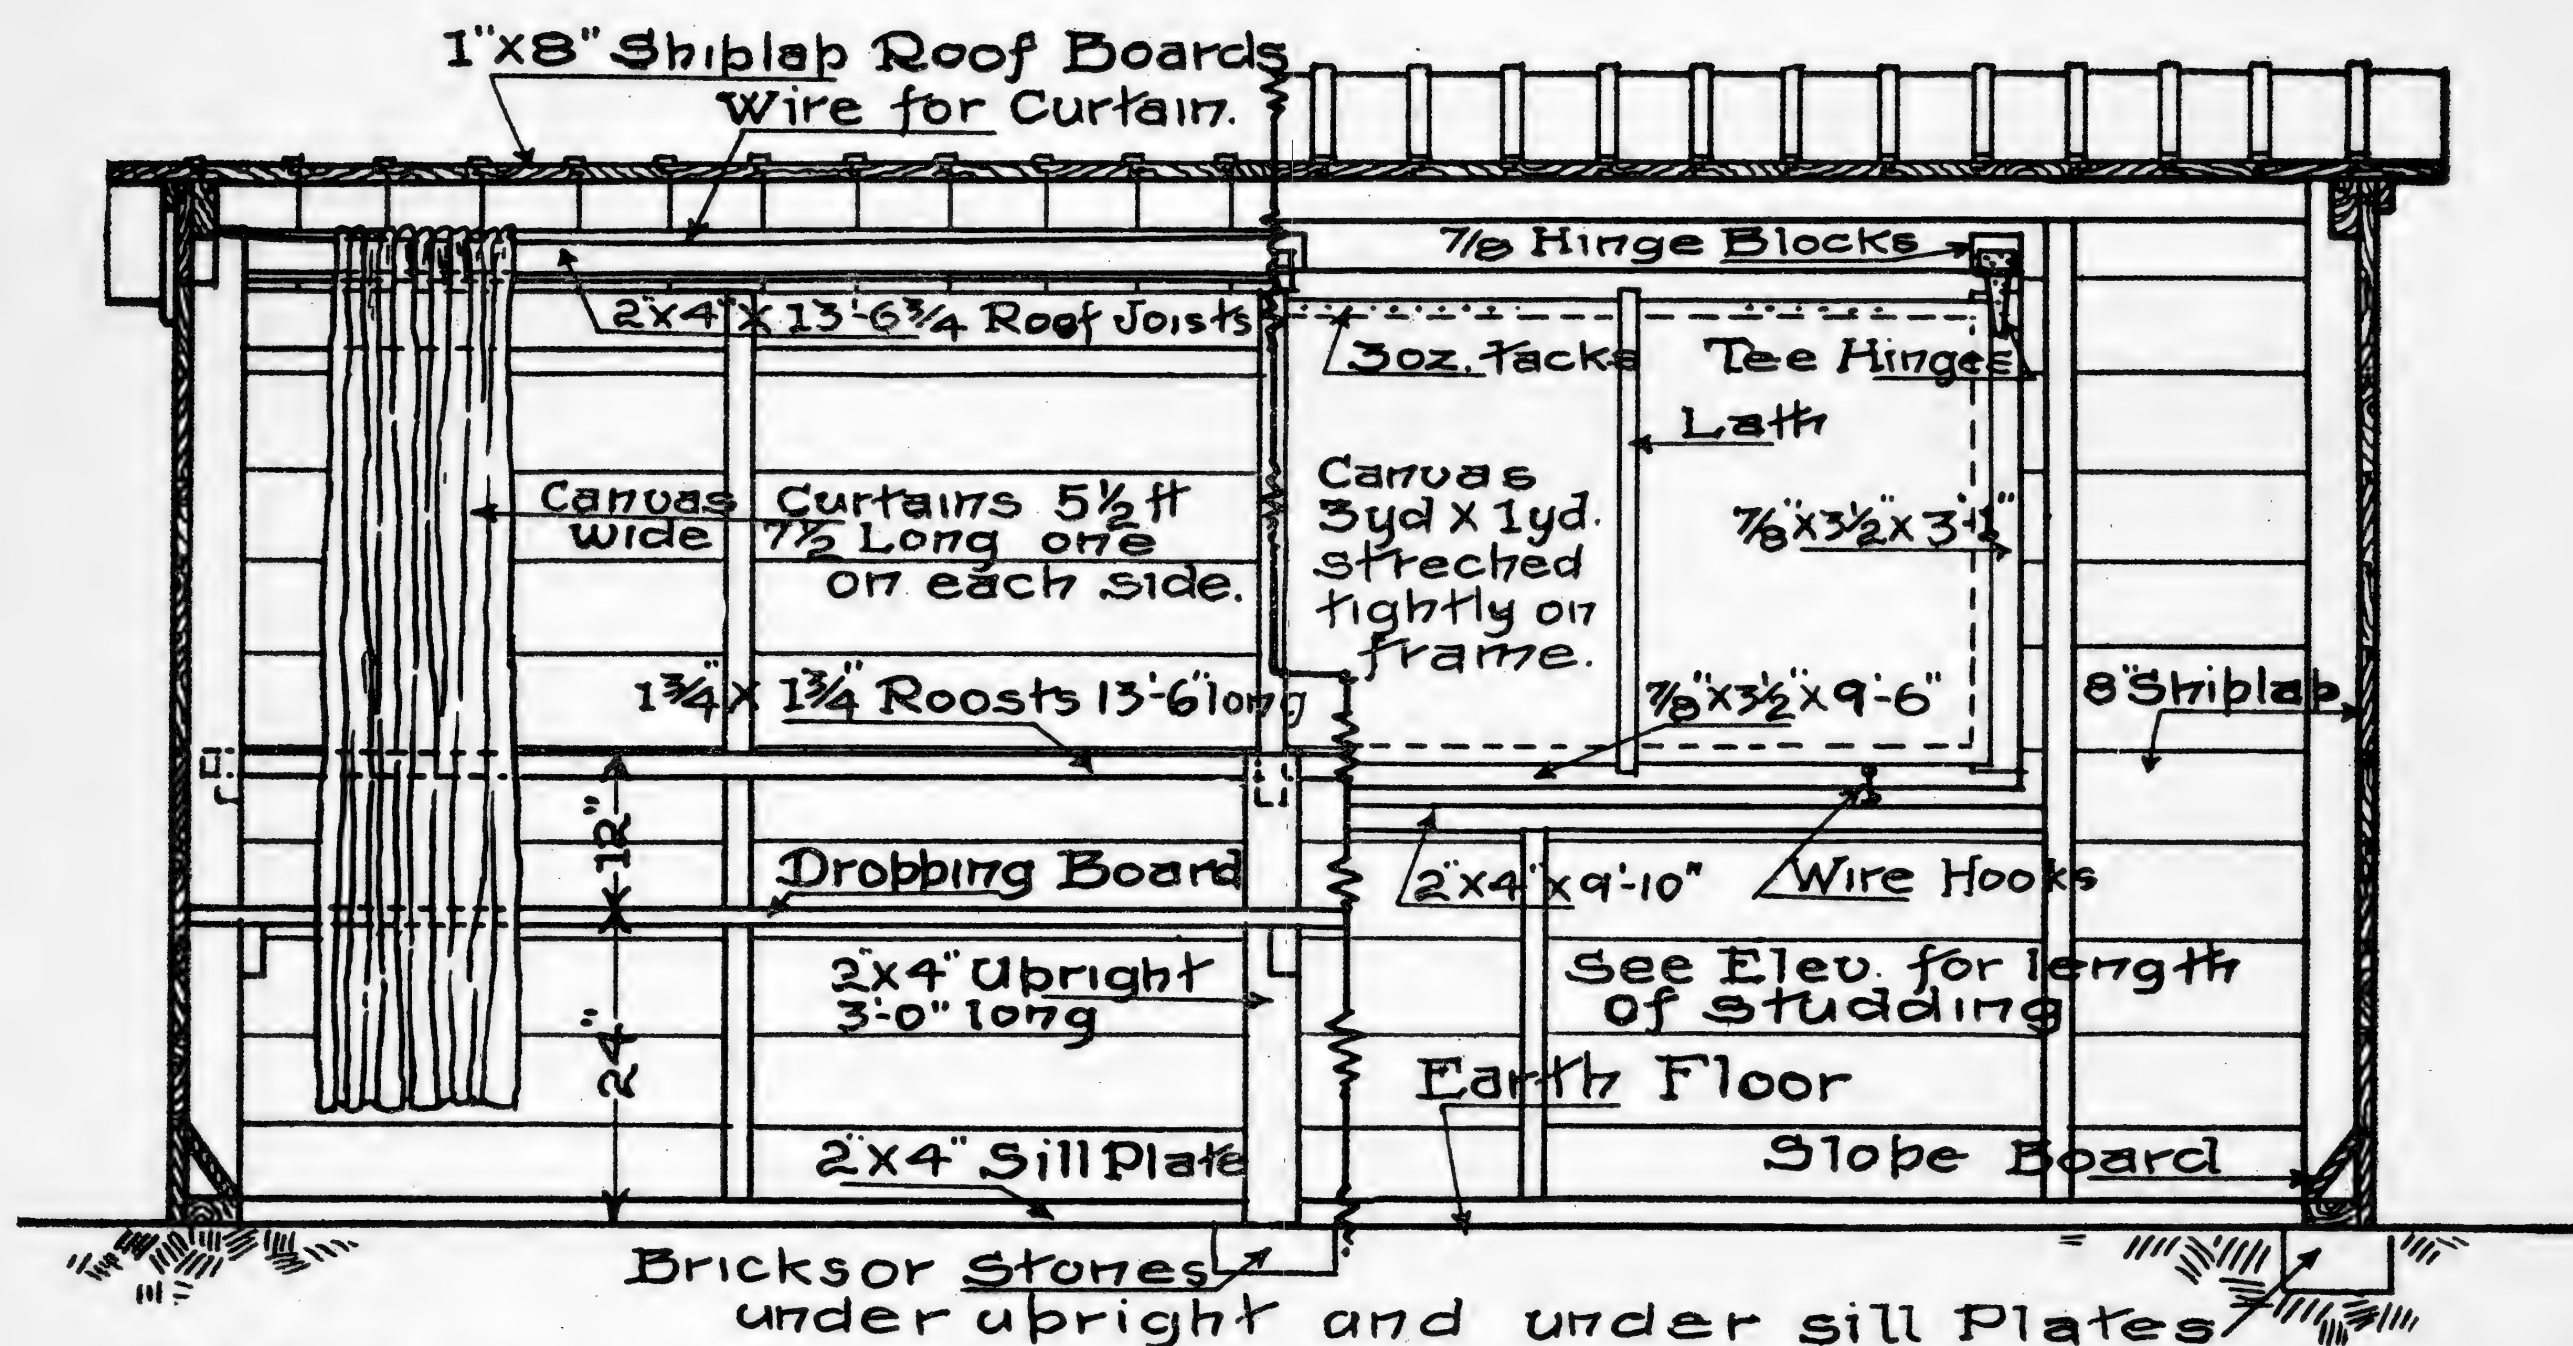 1"x8" Shiplap Roof Boards
Wire for Curtain.
7/8 Hinge Blocks
2"x4" x 13'-6 3/4 Roof Joists
3 oz. tacks
Tee Hinges
Lath
Canvas Curtains 5 1/2 ft
wide 7 1/2 Long one
on each side.
Canvas
3yd x 1yd.
streched
tightly on
frame.
7/8"x3 1/2"x3'-1"
1 3/4" x 1 3/4" Roosts 13'-6" long
7/8"x3 1/2"x9'-6"
8" Shiplap
12"
Dropping Board
2"x4"x9'-10"
Wire Hooks
24"
2"x4" Upright
3'-0" long
See Elev. for length
of studding
Earth Floor
2"x4" Sill Plate
Slope Board
Bricks or Stones
under upright and under sill Plates